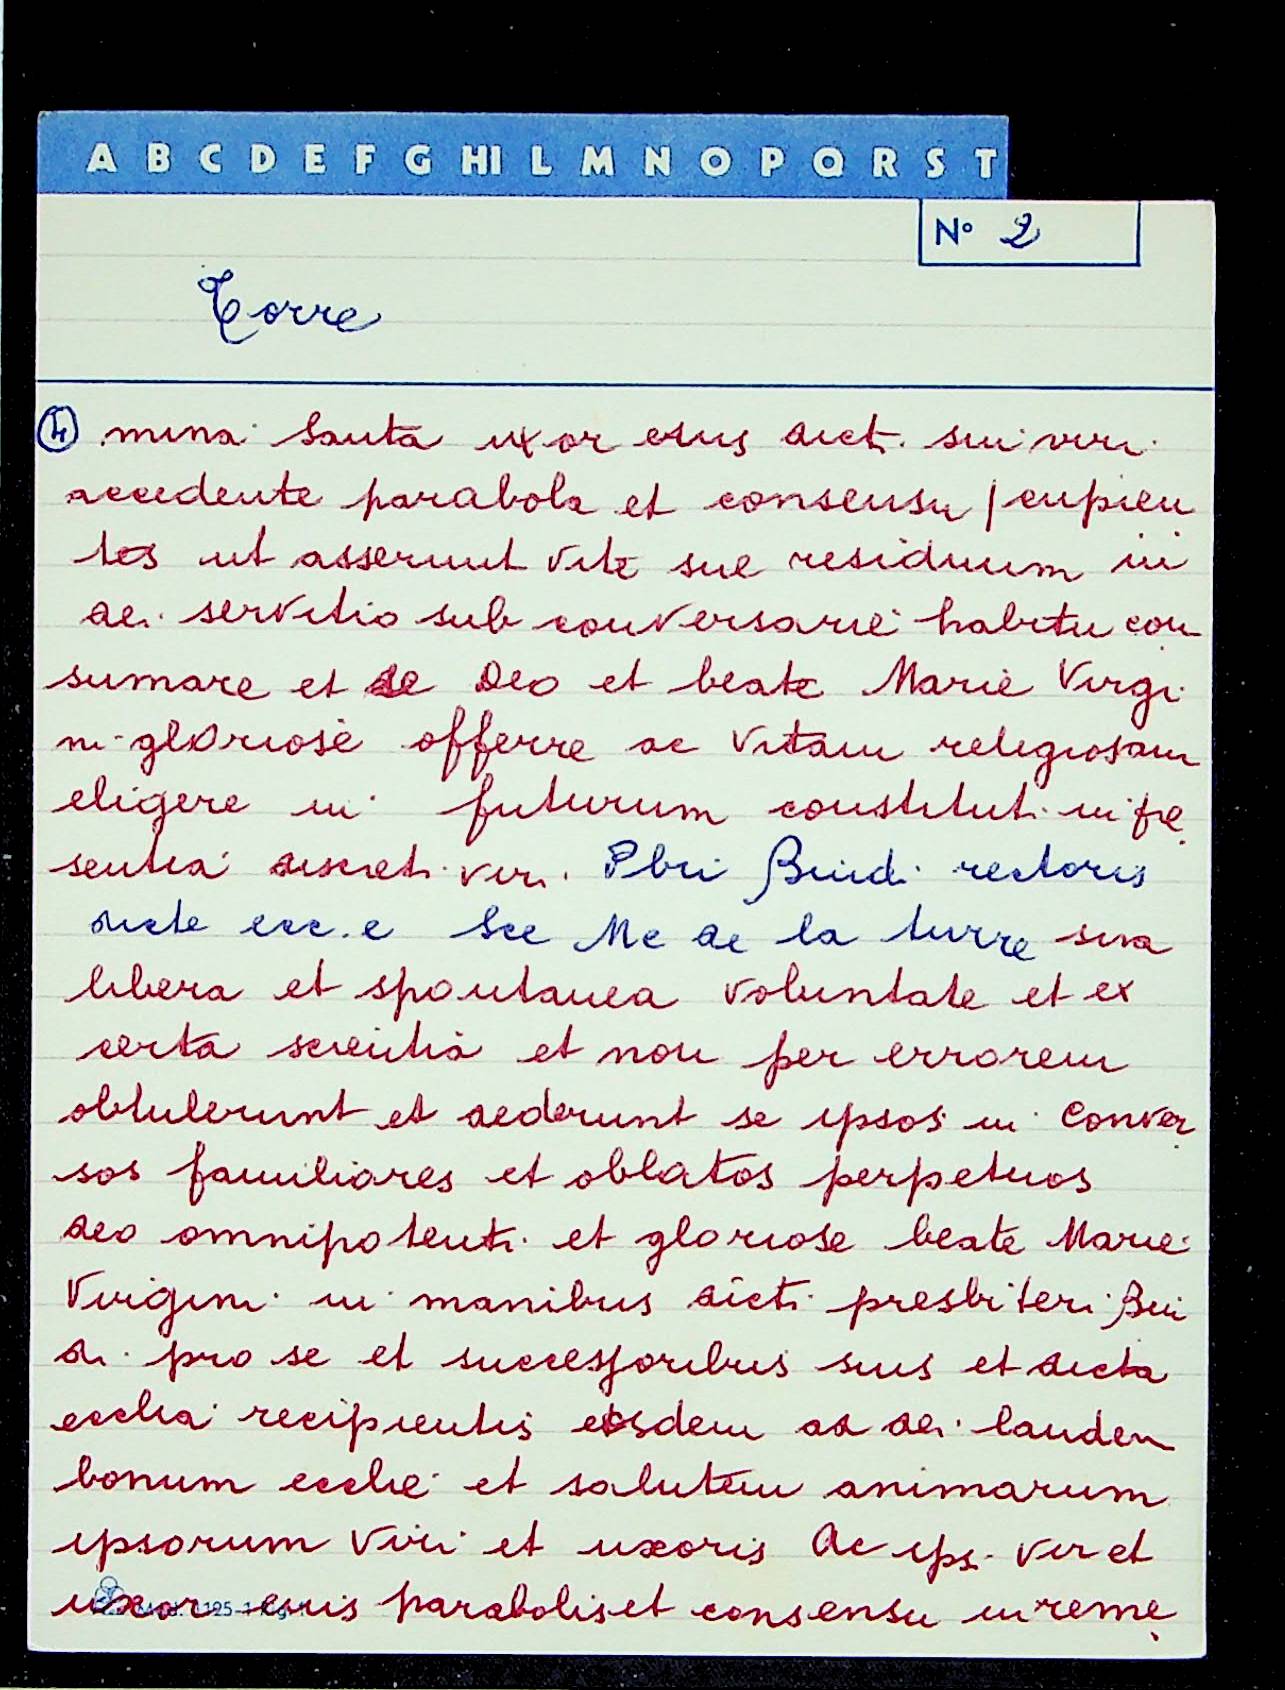 A B C D E F G HI L M N O P Q R S T
N° 2
Torre
4 mina Santa uxor eius dict. sui viri
accedente parabola et consensu / cupien
tes ut asserunt vite sue residuum in
dei servitio sub conversarie habitu con
sumare et se Deo et beate Marie Virgi
ni gloriose offerre ac vitam religiosam
eligere in futurum constituti in pre
sentia discreti viri Pbri Bindi rectoris
dicte ecc.e Sce Me de la turre sua
libera et spontanea voluntate et ex
certa scientia et non per errorem
obtulerunt et dederunt se ipsos in conver
sos familiares et oblatos perpetuos
deo omnipotenti et gloriose beate Marie
Virgini in manibus dicti presbiteri Bin
di pro se et successoribus suis et dicta
ecclia recipientis eosdem ad dei laudem
bonum ecclie et salutem animarum
ipsorum viri et uxoris Ac ips. vir et
uxor eius parabolis et consensu in reme